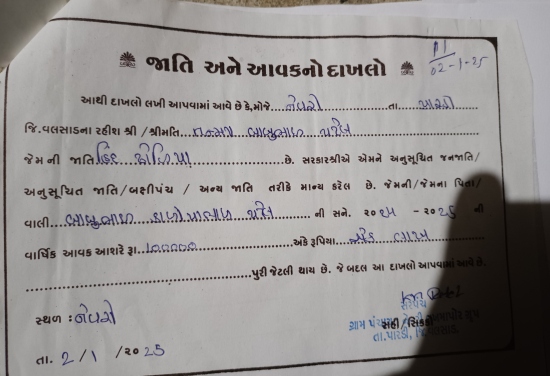 P1
02-1-25
જાતિ અને આવકનો દાખલો
આથી દાખલો લખી આપવામાં આવે છે કે, મોજે નેવરી તા. પારડી
જિ. વલસાડના રહીશ શ્રી / શ્રીમતિ બાબુભાઈ પટેલ
જેમની જાતિ હિંદુ ધોડિયા છે. સરકારશ્રીએ એમને અનુસૂચિત જનજાતિ/
અનુસૂચિત જાતિ/બક્ષીપંચ / અન્ય જાતિ તરીકે માન્ય કરેલ છે. જેમની/જેમના પિતા/
વાલી બાબુભાઈ પટેલ ની સને. ૨૦૨૫ - ૨૦૨૬ ની
વાર્ષિક આવક આશરે રૂા. ૧૦૦૦૦૦ અંકે રૂપિયા એક લાખ
પુરી જેટલી થાય છે. જે બદલ આ દાખલો આપવામાં આવે છે.
સ્થળ : નેવરી
સરપંચ
સહી/સિક્કો
ગ્રામ પંચાયત
તા. પારડી, જિ. વલસાડ
તા. 2 / 1 / ૨૦25